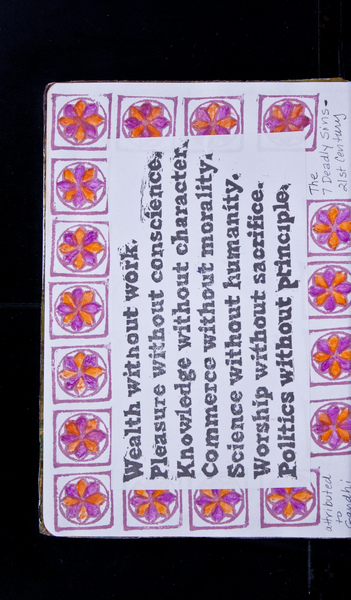 The
7 Deadly Sins-
21st Century
Wealth without work.
Pleasure without conscience.
Knowledge without character.
Commerce without morality.
Science without humanity.
Worship without sacrifice.
Politics without principle.
attributed
to
Gandhi